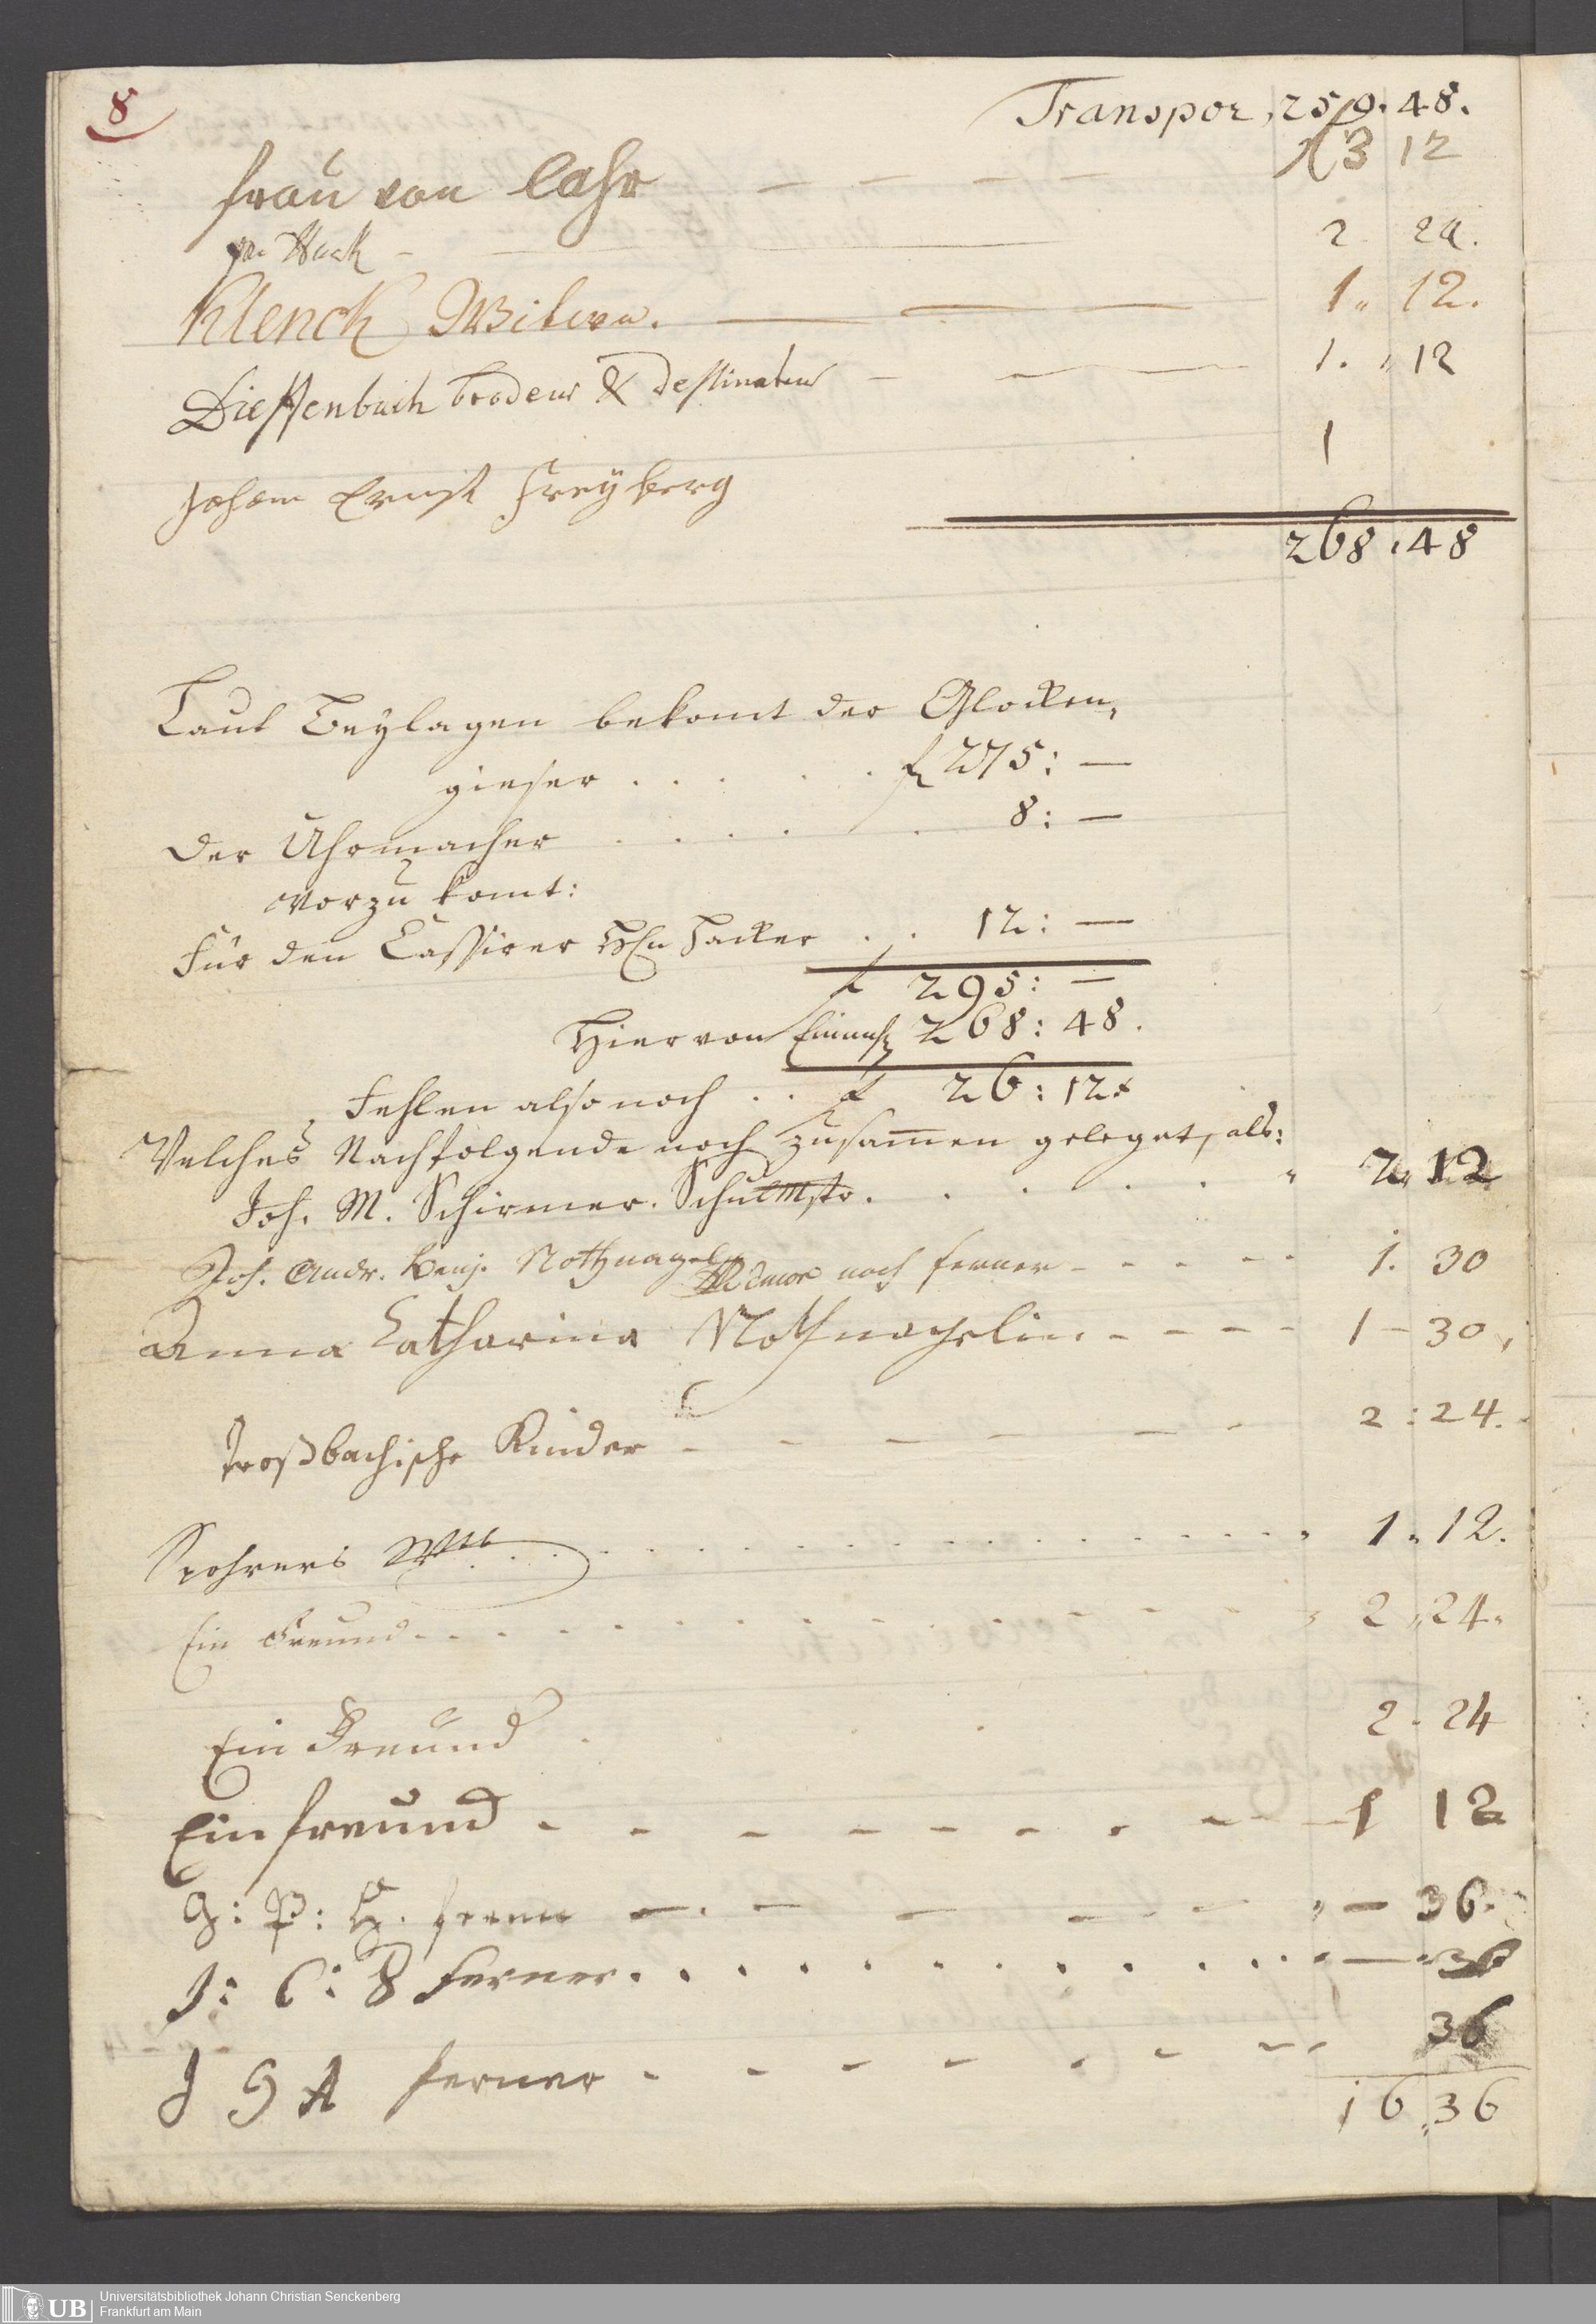 8
Transpor, 259. 48.
frau von Lahr — — — — 3 12
Hack - — 2. 24.
Klenck Wittwe. — — — 1„ 12.
Dieffenbach brodeur & Dessinateur — — 1. „ 12
Johann Ernst Freyberg 1
268. 48
Laut Beylagen bekomt der Glocken,
gieser . . . . . f 275: —
Der Uhrmacher . . . . . 8: —
worzu komt:
Für den Cassirer Hln Hacker . . 12: —
f 295: —
Hiervon Einnahm 268: 48.
Fehlen also noch . . f 26: 12x
Welches Nachfolgende noch zusamen geleget, als:
Joh. M. Schirmer. Schulmstr. . . . . . „ 2„ 12
Joh. Andr. Benj. Nothnagel noch ferner - - - - - 1. 30
Anna Catharina Nothnagelin - - - - 1 - 30,
Troßbachische Kinder - - - - - - 2 : 24.
Spohrers Wtb . . . . . . . . . . . . 1 „ 12.
Ein Freund - . . . . . . . . . . 2 „ 24.
Ein Freund . . . 2 - 24
Ein freund - - - - - - - - - 1 12
G: P: H. ferner — . — — — - „ — 36.
J: C: B ferner . . . . . . . . . . . — „ 36
J G A ferner - - - - - - - 36
16„36
UB Universitätsbibliothek Johann Christian Senckenberg
Frankfurt am Main